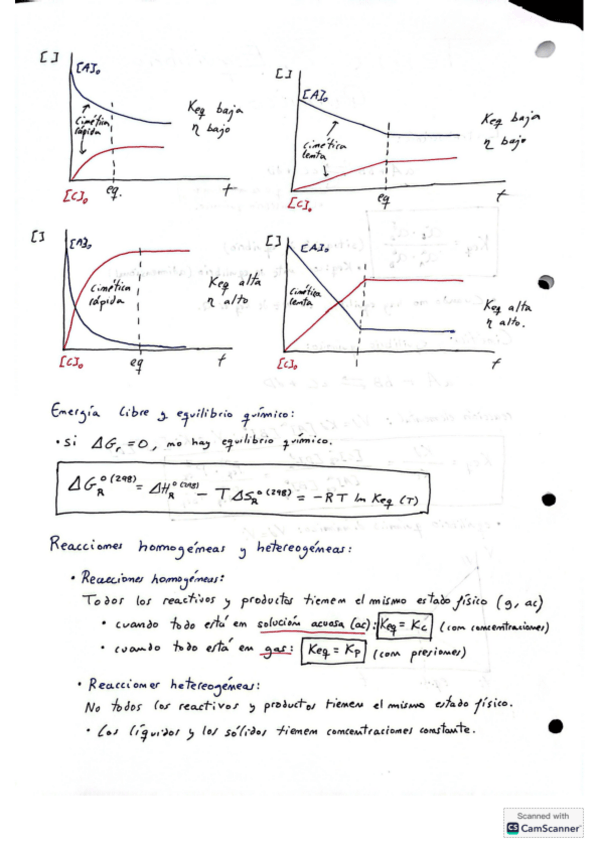 [ ]
[A]₀
cinética
rápida
Keq baja
η bajo
[C]₀
eq.
t
[ ]
[A]₀
cinética
lenta
Keq baja
η bajo
[C]₀
eq
t
[ ]
[A]₀
cinética
rápida
Keq alta
η alto
[C]₀
eq
t
[ ]
[A]₀
cinética
lenta
Keq alta
η alto.
[C]₀
t
Energía libre y equilibrio químico:
• si ΔGr = 0, no hay equilibrio químico.
ΔG_R^o(298) = ΔH_R^o(298) − TΔS_R^o(298) = −RT ln Keq (T)
Reacciones homogéneas y hetereogéneas:
• Reacciones homogéneas:
Todos los reactivos y productos tienen el mismo estado físico (g, ac)
• cuando todo está en solución acuosa (ac): Keq = Kc (con concentraciones)
• cuando todo está en gas: Keq = Kp (con presiones)
• Reacciones hetereogéneas:
No todos los reactivos y productos tienen el mismo estado físico.
• Los líquidos y los sólidos tienen concentraciones constante.
Scanned with
CS CamScanner